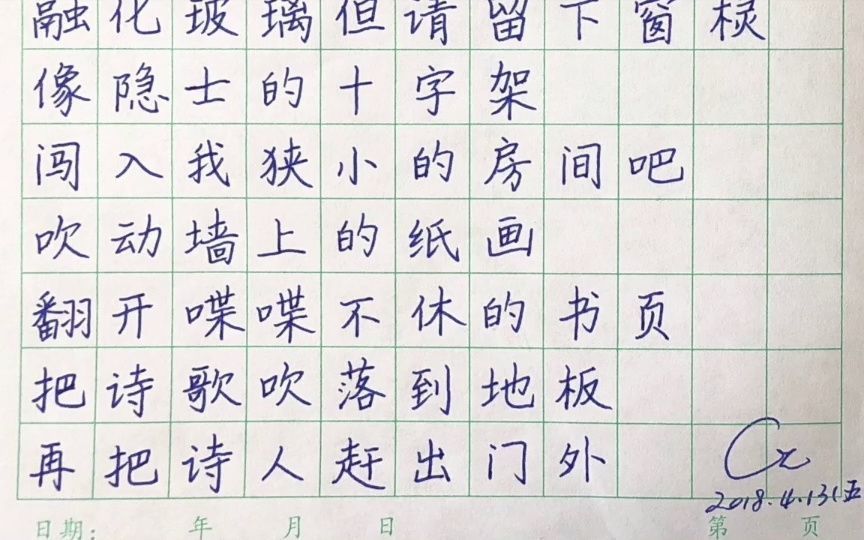 融化玻璃但请留下窗棂
像隐士的十字架
闯入我狭小的房间吧
吹动墙上的纸画
翻开喋喋不休的书页
把诗歌吹落到地板
再把诗人赶出门外
2018.4.13(五
日期: 年 月 日 第 页